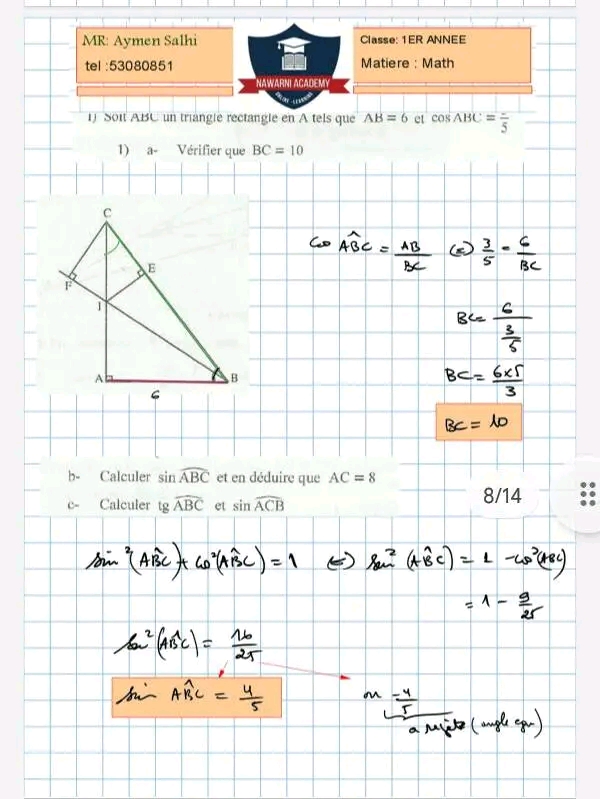 MR: Aymen Salhi
tel :53080851
NAWARNI ACADEMY
ONLINE - LEARNING
Classe: 1ER ANNEE
Matiere : Math
1) Soit ABC un triangle rectangle en A tels que AB = 6 et cos ABC = 3/5
1) a- Vérifier que BC = 10
C
E
F
I
A
B
6
cos AB̂C = AB/BC (=) 3/5 = 6/BC
BC = 6/(3/5)
BC = 6×5/3
BC = 10
b- Calculer sin ABC et en déduire que AC = 8
c- Calculer tg ABC et sin ACB
8/14
sin²(AB̂C) + cos²(AB̂C) = 1 (=) sin²(AB̂C) = 1 - cos²(ABC)
= 1 - 9/25
sin²(AB̂C) = 16/25
sin AB̂C = 4/5
ou -4/5
a rejeter (angle